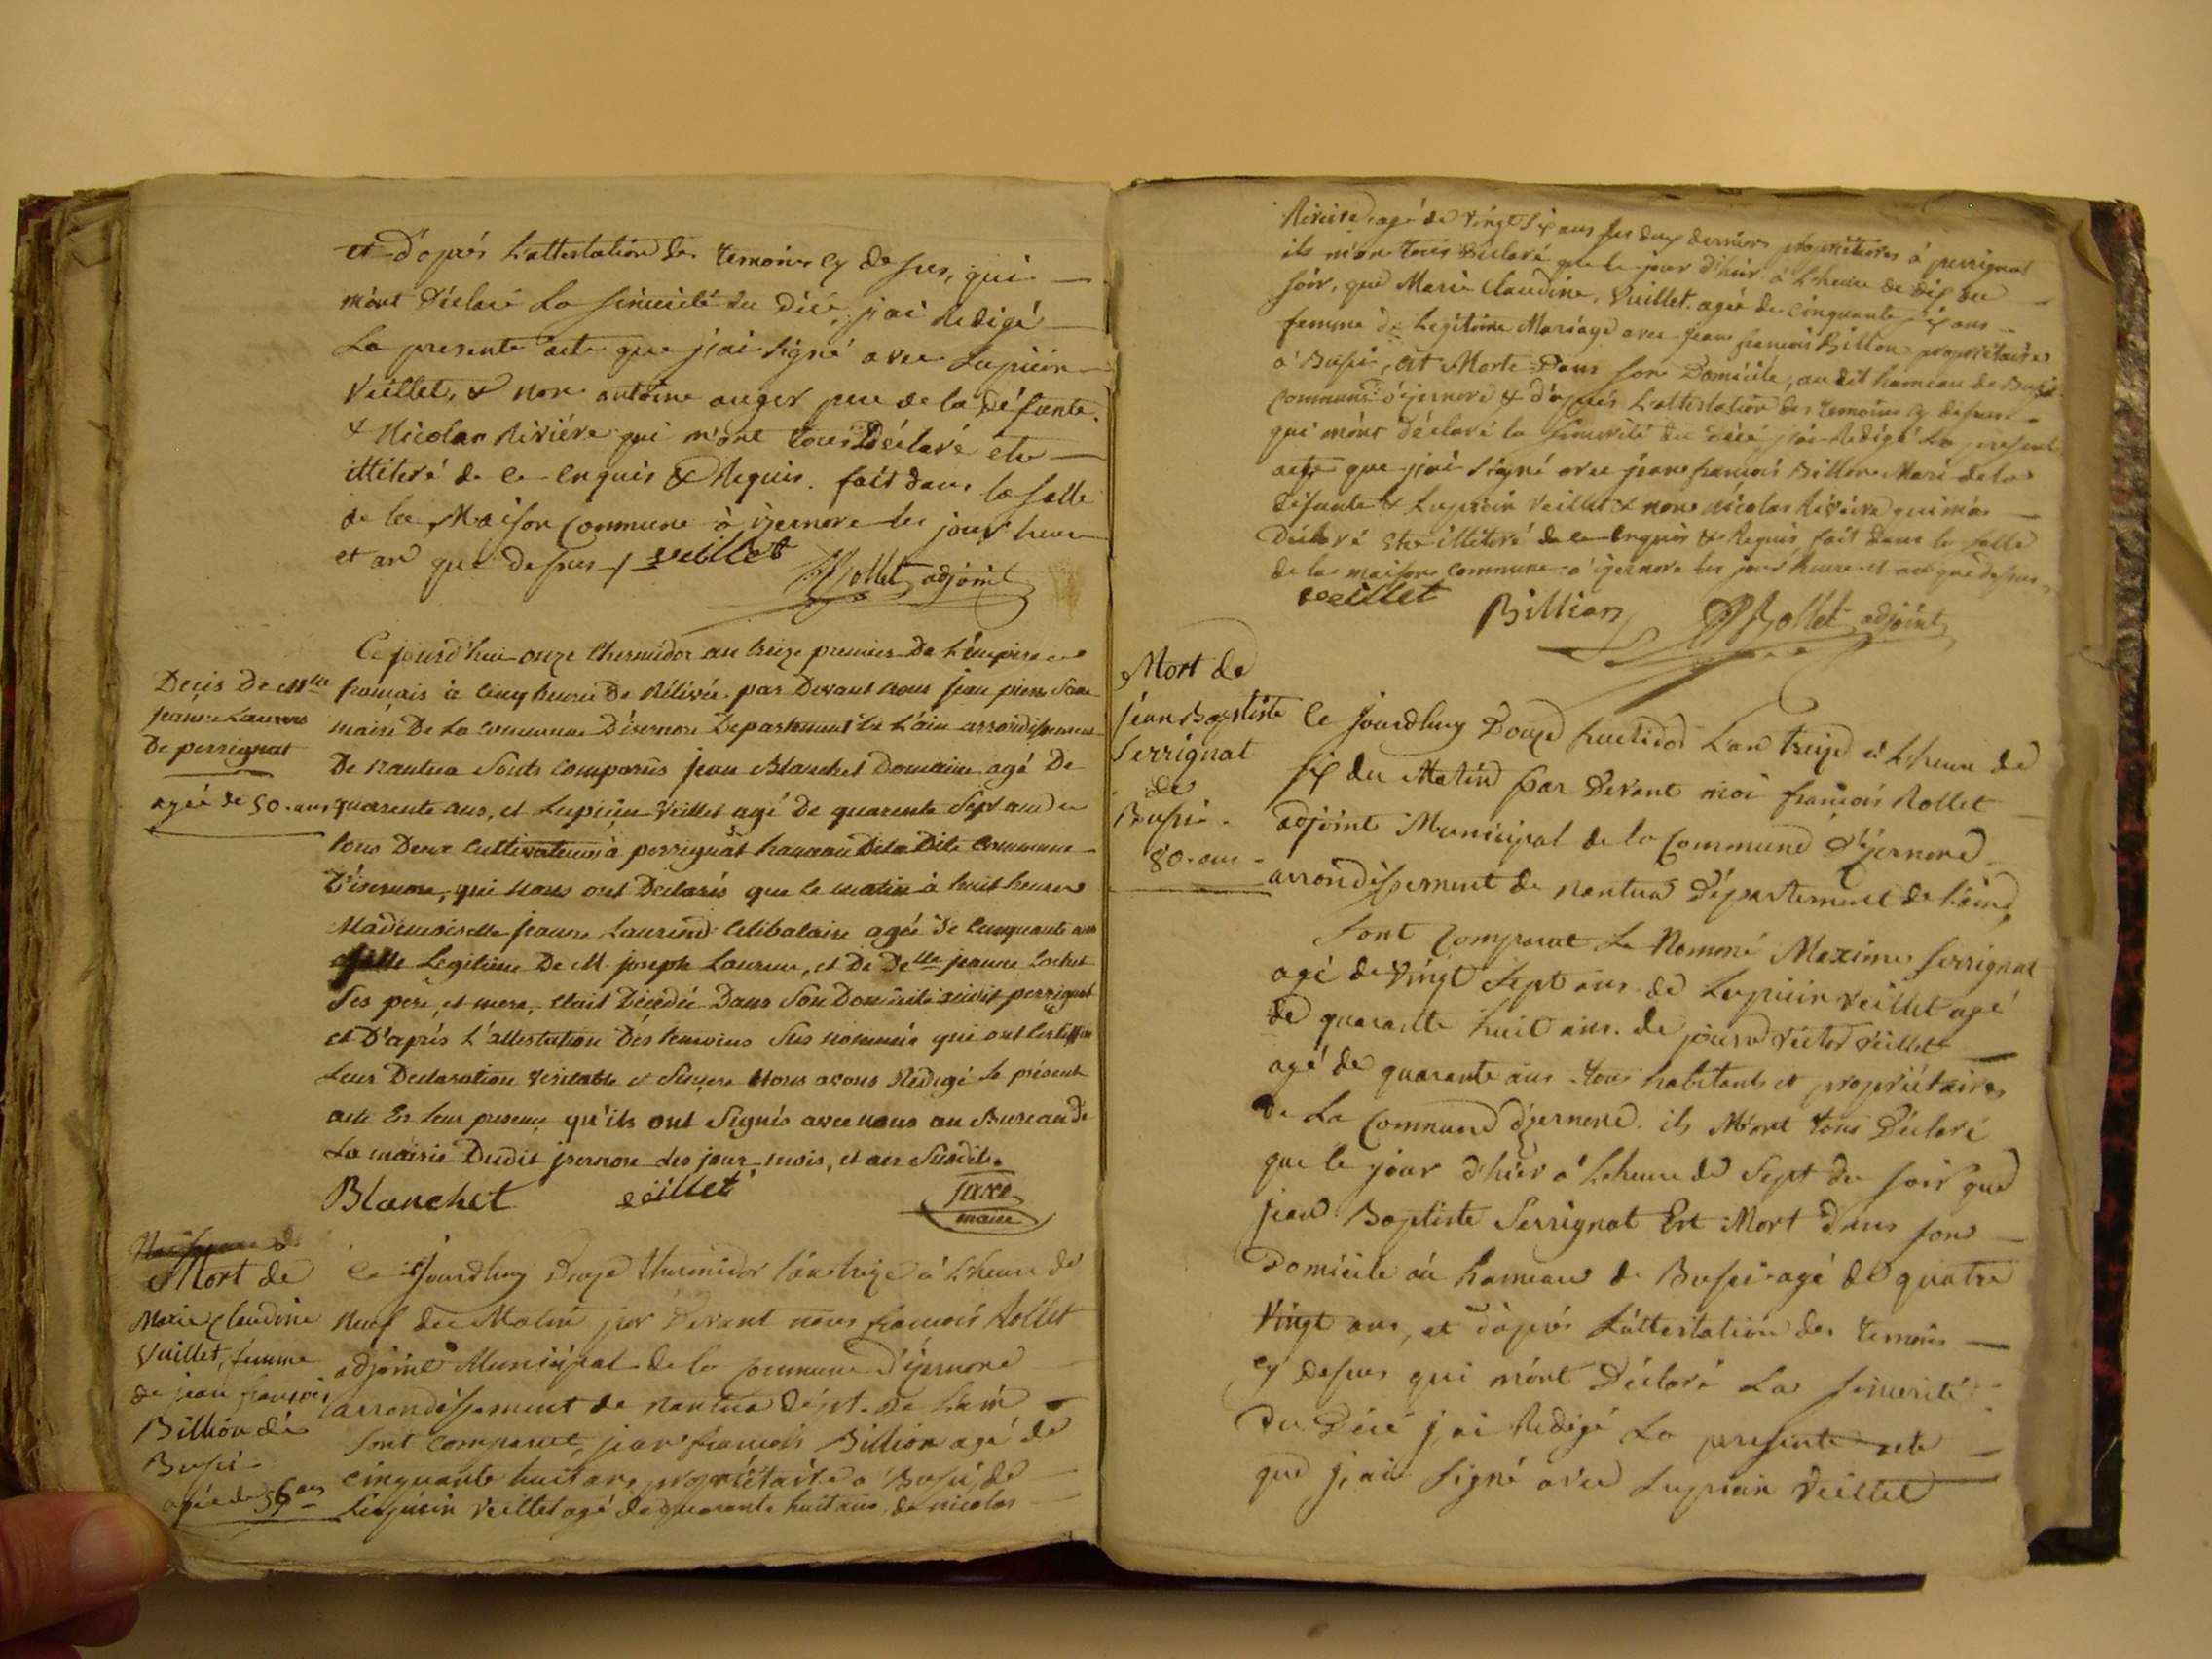 et d'aprés L'attestation des temoins cy dessus, qui
m'ont déclaré La sincerité du décé, j'ai Redigé
La presente acte que j'ai signé avec Lupicin
Veillet, & non antoine auger pere de la défunte
& Nicolas Riviére qui m'ont tous Déclaré etre
illiteré de ce Enquis & Requis. fait dans la salle
de la Maison Commune à izernore les jour heure
et an que dessus / veillet
Rollet adjoint
Decis de Mlle
jeanne Laurens
De perrignat
agée de 50. ans
Ce jourd'hui onze thermidor an treize premier De L'empire
français à cinq heures De Rélévée par Devant nous jean pierre
maire De La commune D'isernore Departement De L'ain arrondissement
De nantua Sonts comparus jean Blanchet Domaine agé De
quarente ans, et Lupicin Veillet agé De quarente Sept ans
tous Deux cultivateurs à perrignat hameau De la Dite commune
D'isernore, qui nous ont Declarés que ce matin à huit heures
Mademoiselle jeanne Laurend Celibataire agée De cinquante ans
fille Legitime De M. joseph Laurens, et De Delle jeanne Lochet
Ses pere, et mere, etait Décédée Dans Son Domicile perrignat
et D'aprés L'attestation Des temoins Sus nommés qui ont
Leur Declaration véritable et Sincere Nous avons Rédigé Le présent
acte En leur presence qu'ils ont Signés avec nous au Bureau De
La mairie Dudit isernore les jour, mois, et an Susdits.
Blanchet veillet
maire
Mort de
Marie Claudine
Vuillet, femme
de jean françois
Billion dé
Bussi
agée de 56 ans
Ce jourdhuy douze thermidor l'an treize à L'heure de
neuf du Matin par Devant nous françois Rollet
adjoint Municipal de la Commune d'izernore
arrondissement de nantua dépt. de L'ain
Sont comparut, jean françois Billion agé de
cinquante huit ans, propriétaire a Bussi, de
Lupicin Veillet agé de quarante huit ans, de nicolas
Riviere agé de vingt six ans les deux derniers propriétaires à perrignat
ils m'on tous déclaré que le jour d'hier à L'heure de dix du
soir, que Marie Claudine, Vuillet. agée de cinquante six ans
femme de Legitime Mariage avec jean francois Billion propriétaire
à Bussi, est Morte Dans son Domicile, au dit hameau de Bussi
commune d'izernore & d'aprés L'attestation des temoins cy dessus
qui m'ont déclaré la sincerité du décé j'ai Redigé La present
acte que j'ai signé avec jean françois Billion Mari de la
défunte & Lupicin veillet & non nicolas Riviére qui m'a
Déclaré etre illiteré de ce enquis & Requis fait dans la salle
de la maison commune à izernore les jour heure et an que dessus
veillet Billion Rollet adjoint
Mort de
jean Baptiste
Serrignat
de
Bussi
80. ans
Ce jourdhuy Douze fructidor L'an treize à L'heure de
six du Matin par Devant moi françois Rollet
adjoint Municipal de la Commune d'izernore
arrondissement de nantua Département de L'ain,
Sont Comparut Le Nommé Maxime Serrignat
agé de Vingt Sept ans. de Lupicin Veillet agé
de quarante huit ans. de Veillet
agé de quarante ans tous habitants et propriétaires
de La Commune d'izernore. ils M'ont tous Déclaré
que le jour d'hier à L'heure de Sept du soir que
jean Baptiste Serrignat Est Mort dans son
Domicile au hameau de Bussi agé de quatre
Vingt ans, et d'après L'attestation des temoins
cy dessus qui m'ont Déclaré La sincerité
Du Décé j'ai Redigé La presente acte
que j'ai Signé avec Lupicin Veillet